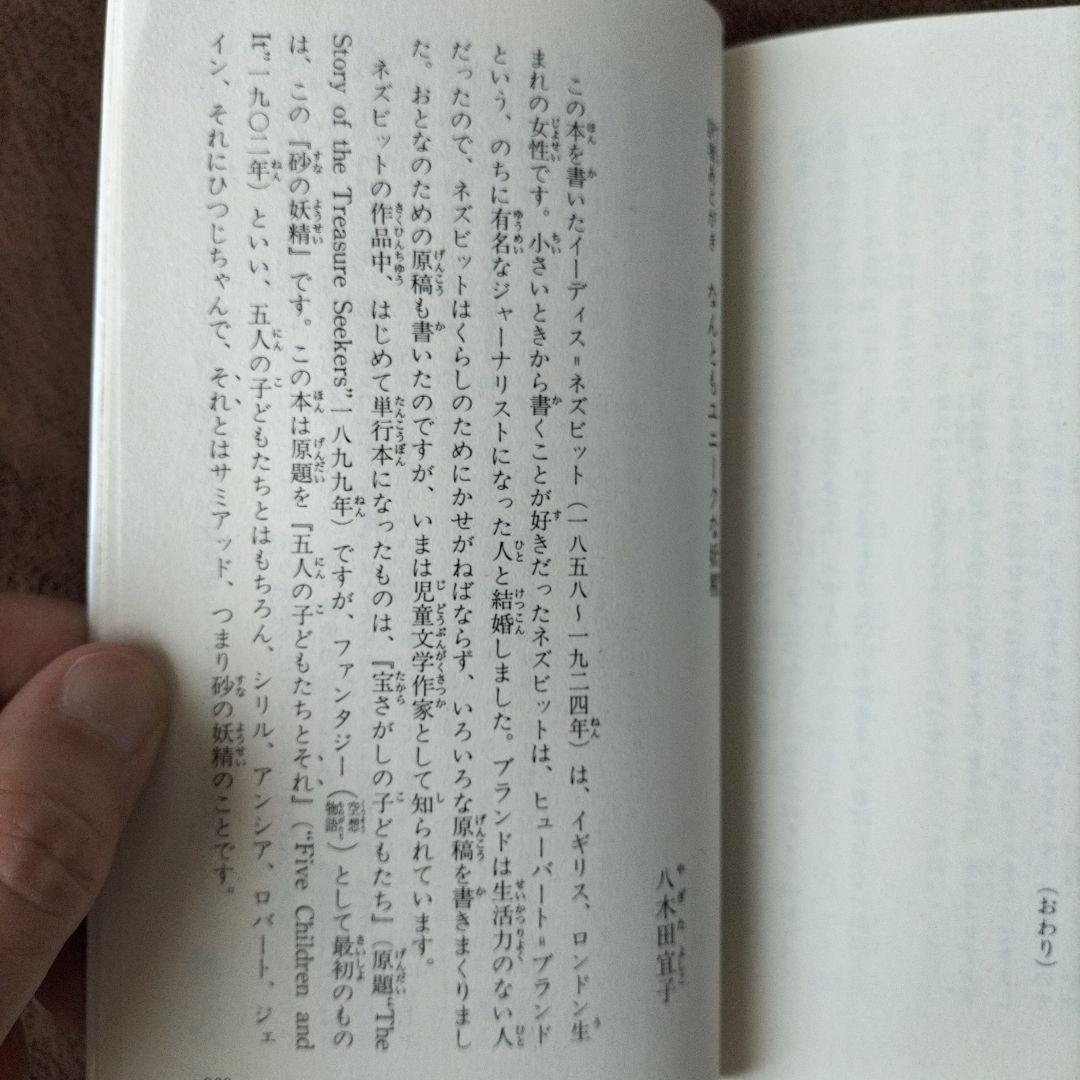 (おわり)
なんともユニークな妖精
八木田宜子
この本を書いたイーディス=ネズビット(一八五八~一九二四年)は、イギリス、ロンドン生
まれの女性です。小さいときから書くことが好きだったネズビットは、ヒューバート=ブランド
という、のちに有名なジャーナリストになった人と結婚しました。ブランドは生活力のない人
だったので、ネズビットはくらしのためにかせがねばならず、いろいろな原稿を書きまくりまし
た。おとなのための原稿も書いたのですが、いまは児童文学作家として知られています。
ネズビットの作品中、はじめて単行本になったものは、『宝さがしの子どもたち』(原題“The
Story of the Treasure Seekers”一八九九年)ですが、ファンタジー(空想物語)として最初のもの
は、この『砂の妖精』です。この本は原題を『五人の子どもたちとそれ』(“Five Children and
It”一九〇二年)といい、五人の子どもたちとはもちろん、シリル、アンシア、ロバート、ジェ
イン、それにひつじちゃんで、それとはサミアッド、つまり砂の妖精のことです。